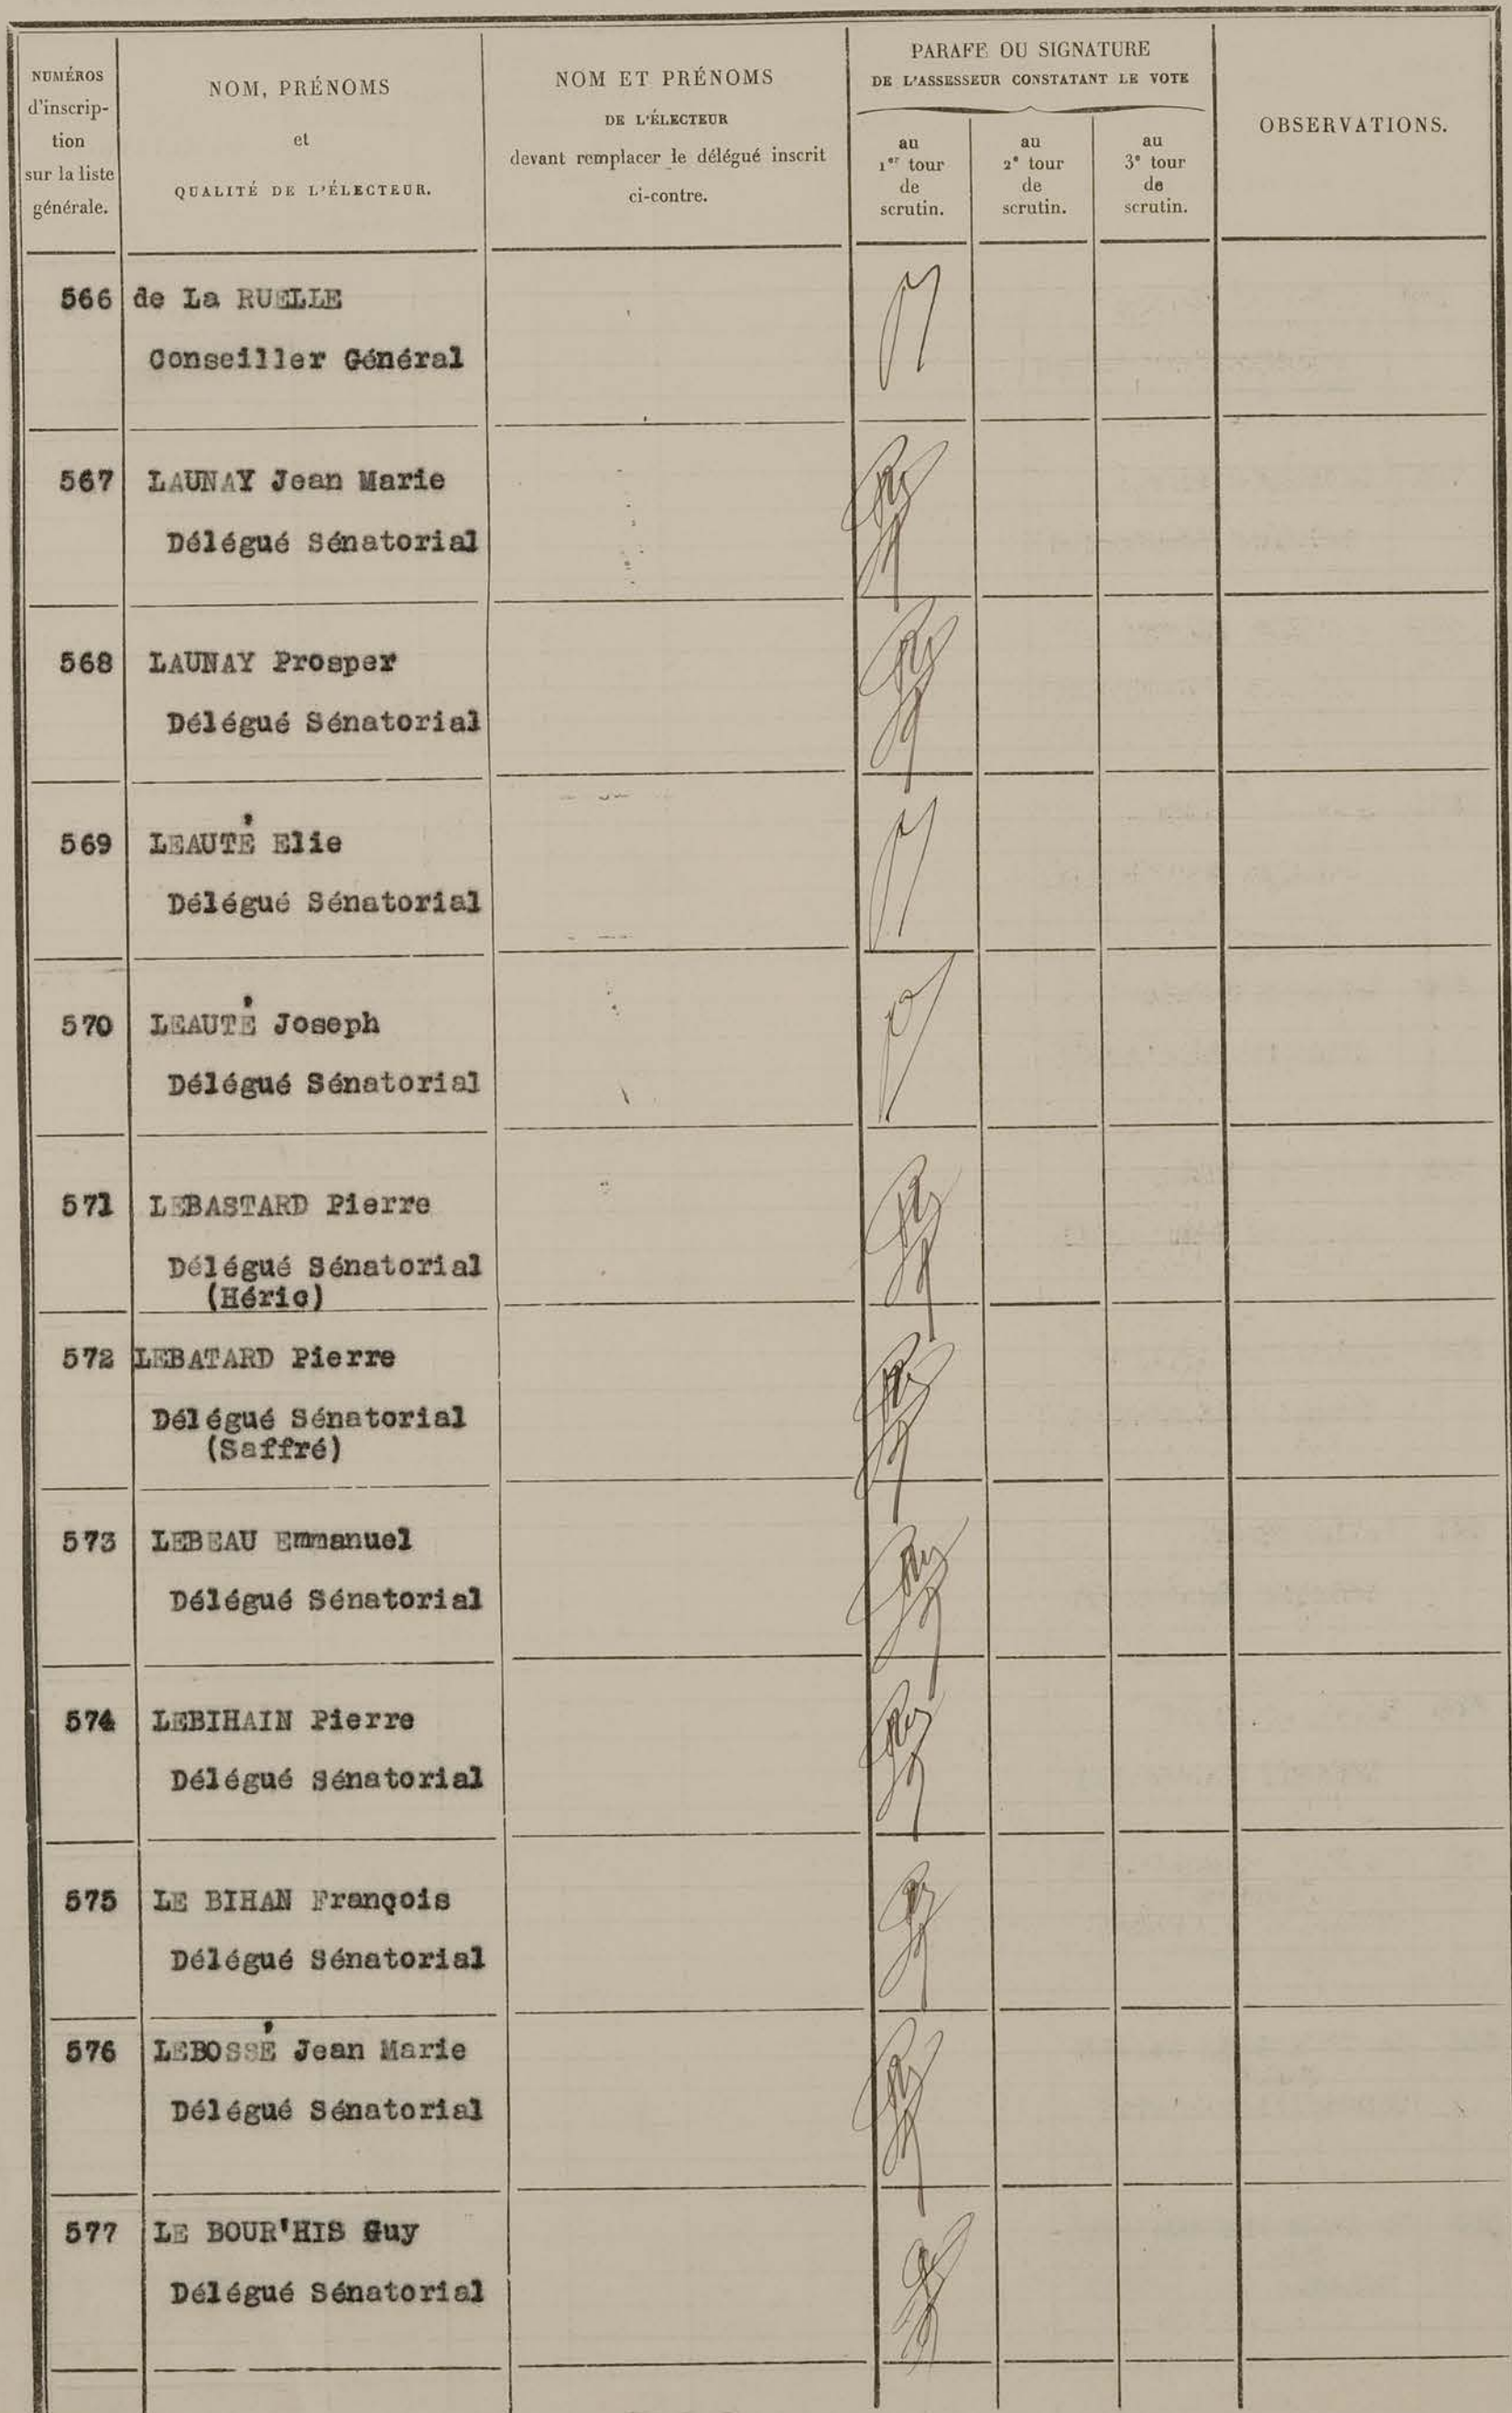 NUMÉROS
d'inscrip-
tion
sur la liste
générale.
NOM, PRÉNOMS
et
QUALITÉ DE L'ÉLECTEUR.
NOM ET PRÉNOMS
DE L'ÉLECTEUR
devant remplacer le délégué inscrit
ci-contre.
PARAFE OU SIGNATURE
DE L'ASSESSEUR CONSTATANT LE VOTE
au
1er tour
de
scrutin.
au
2e tour
de
scrutin.
au
3e tour
de
scrutin.
OBSERVATIONS.
566 de La RUELLE
Conseiller Général
567 LAUNAY Jean Marie
Délégué Sénatorial
568 LAUNAY Prosper
Délégué Sénatorial
569 LEAUTÉ Elie
Délégué Sénatorial
570 LEAUTÉ Joseph
Délégué Sénatorial
571 LEBASTARD Pierre
Délégué Sénatorial
(Héric)
572 LEBATARD Pierre
Délégué Sénatorial
(Saffré)
573 LEBEAU Emmanuel
Délégué Sénatorial
574 LEBIHAIN Pierre
Délégué Sénatorial
575 LE BIHAN François
Délégué Sénatorial
576 LEBOSSÉ Jean Marie
Délégué Sénatorial
577 LE BOUR'HIS Guy
Délégué Sénatorial